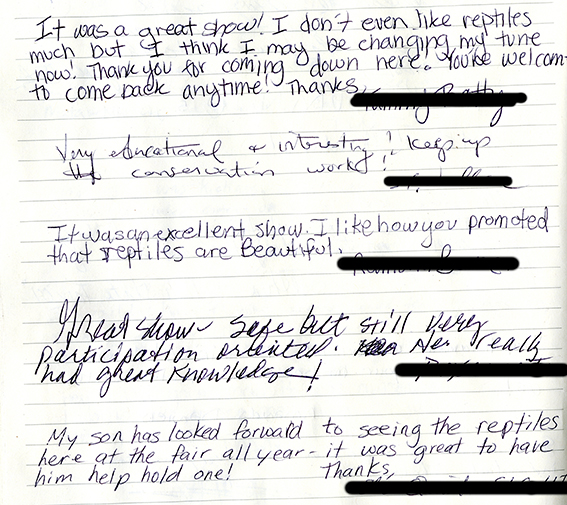 It was a great show! I don't even like reptiles
much but I think I may be changing my tune
now! Thank you for coming down here. You're welcom
to come back anytime! Thanks,
Very educational & interesting! Keep up
the conservation work!
It was an excellent show. I like how you promoted
that reptiles are Beautiful.
Great show - Safe but still very
participation oriented. Her really
had great Knowledge!
My son has looked forward to seeing the reptiles
here at the fair all year - it was great to have
him help hold one! Thanks,